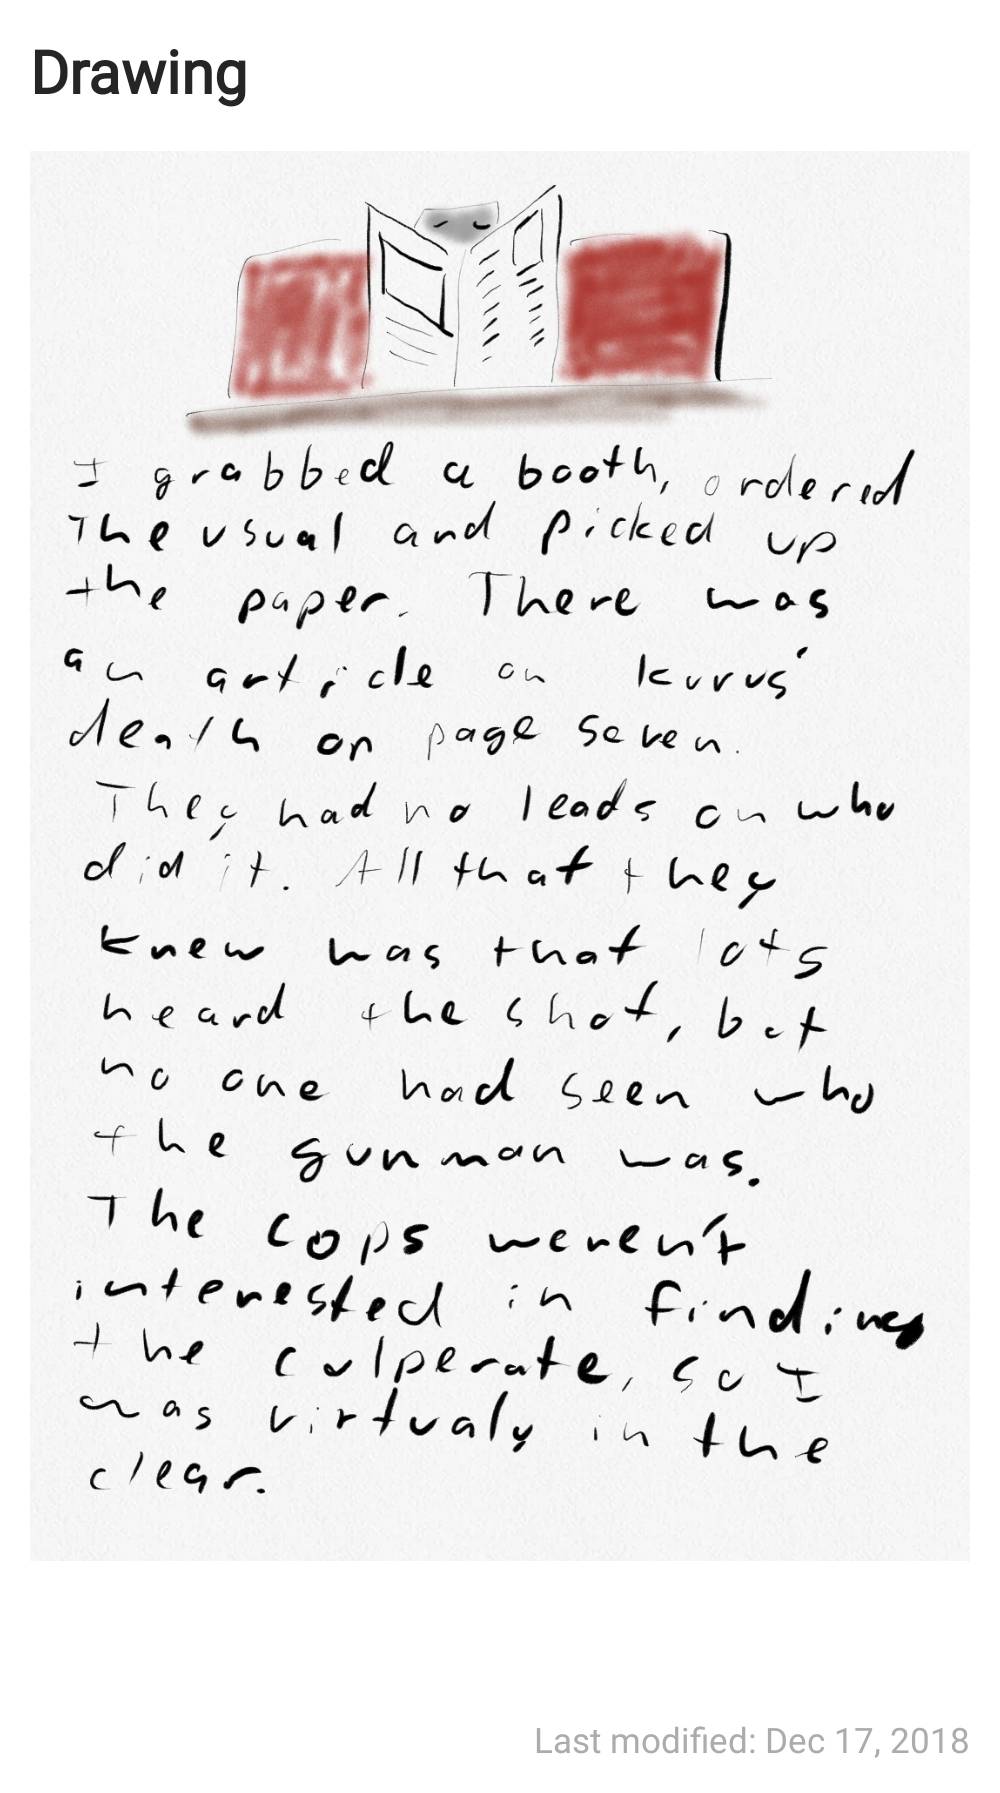 Drawing
I grabbed a booth, ordered
The usual and picked up
the paper. There was
an article on Kurus'
death on page seven.
They had no leads on who
did it. All that they
knew was that lots
heard the shot, but
no one had seen who
the gunman was.
The cops weren't
interested in finding
the culperate, so I
was virtualy in the
clear.
Last modified: Dec 17, 2018